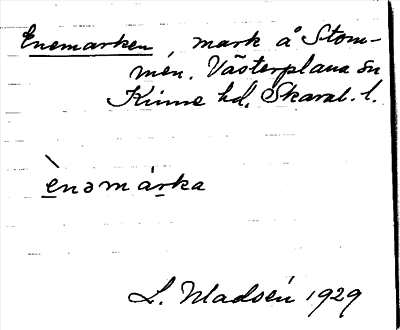 Enemarken, mark å Stom-
men. Västerplana sn
Kinne hd, Skarab. l.
ènəmárka
L. Madsén 1929